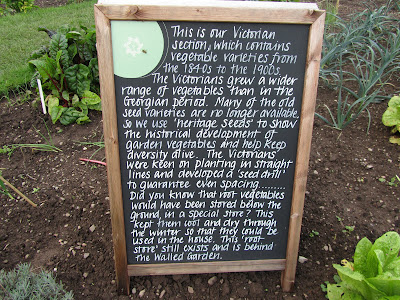 This is our Victorian
section, which contains
vegetable varieties from
the 1840s to the 1900s.
The Victorians grew a wider
range of vegetables than in the
Georgian period. Many of the old
seed varieties are no longer available,
so we use 'heritage seeds' to show
the historical development of
garden vegetables and help keep
diversity alive. The Victorians
were keen on planting in straight
lines and developed a 'seed drill'
to guarantee even spacing.........
Did you know that root vegetables
would have been stored below the
ground, in a special store? This
kept them cool and dry through
the winter so that they could be
used in the house. This 'root
store' still exists and is behind
the Walled Garden.